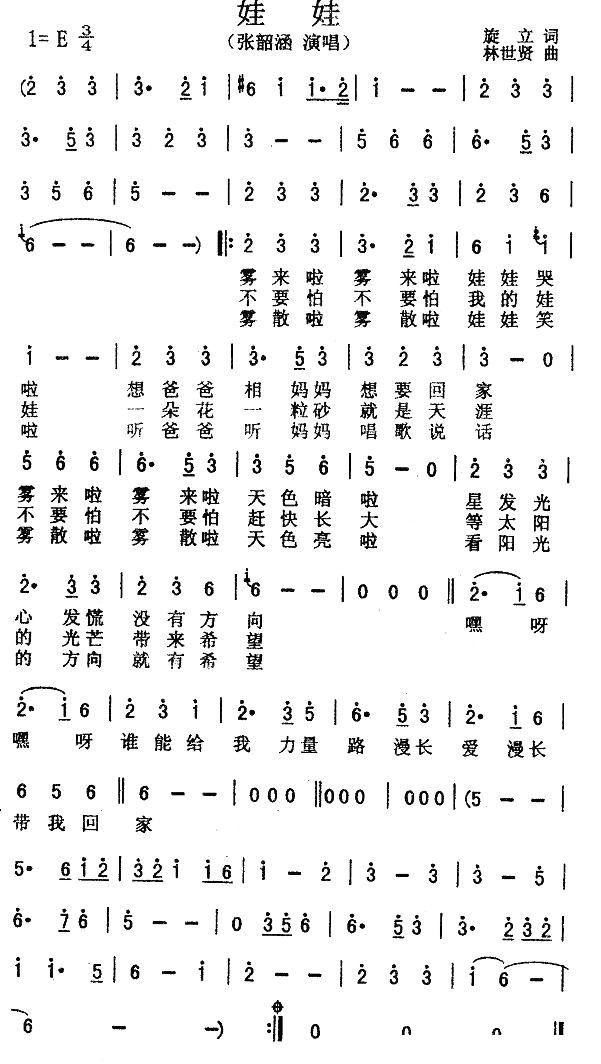 娃 娃
1= E 3/4
(张韶涵 演唱)
旋 立 词
林世贤 曲
(2 3 3 | 3· 2 1 | #6 1 1·2 | 1 - - | 2 3 3 |
3· 5 3 | 3 2 3 | 3 - - | 5 6 6 | 6· 5 3 |
3 5 6 | 5 - - | 2 3 3 | 2· 3 3 | 2 3 6 |
6 - - | 6 - -) ‖: 2 3 3 | 3· 2 1 | 6 1 1 |
雾 来 啦 雾 来 啦 娃 娃 哭
不 要 怕 不 要 怕 我 的 娃
雾 散 啦 雾 散 啦 娃 娃 笑
1 - - | 2 3 3 | 3· 5 3 | 3 2 3 | 3 - 0 |
啦 想 爸 爸 相 妈 妈 想 要 回 家
娃 一 朵 花 一 粒 砂 就 是 天 涯
啦 听 爸 爸 听 妈 妈 唱 歌 说 话
5 6 6 | 6· 5 3 | 3 5 6 | 5 - 0 | 2 3 3 |
雾 来 啦 雾 来 啦 天 色 暗 啦 星 发 光
不 要 怕 不 要 怕 赶 快 长 大 等 太 阳
雾 散 啦 雾 散 啦 天 色 亮 啦 看 阳 光
2· 3 3 | 2 3 6 | 6 - - | 0 0 0 ‖ 2· 1 6 |
心 发 慌 没 有 方 向 嘿 呀
的 光 芒 带 来 希 望
的 方 向 就 有 希 望
2· 1 6 | 2 3 1 | 2· 3 5 | 6· 5 3 | 2· 1 6 |
嘿 呀 谁 能 给 我 力 量 路 漫 长 爱 漫 长
6 5 6 ‖ 6 - - | 0 0 0 ‖ 0 0 0 | 0 0 0 | (5 - - |
带 我 回 家
5· 6 1 2 | 3 2 1 1 6 | 1 - 2 | 3 - 3 | 3 - 5 |
6· 7 6 | 5 - - | 0 3 5 6 | 6· 5 3 | 3· 2 3 2 |
1 1· 5 | 6 - 1 | 2 - 2 | 3 3 3 | 1 1 6 - |
6 - -) :‖ 0 0 0 ‖